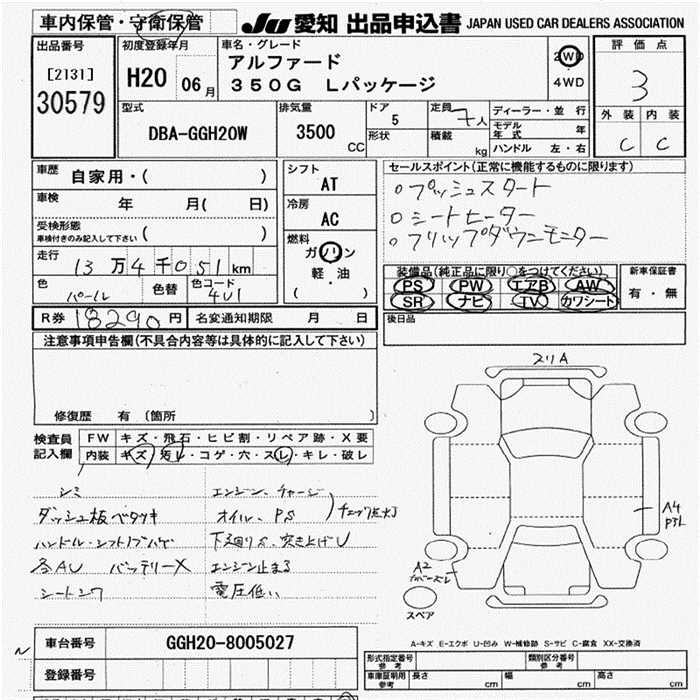 車内保管・守衛保管
JU 愛知 出品申込書 JAPAN USED CAR DEALERS ASSOCIATION
出品番号
[2131]
30579
初度登録年月
H20 06月
車名・グレード
アルファード
350G Lパッケージ
2WD
4WD
評価点
3
外装 内装
C C
型式
DBA-GGH20W
排気量
3500 CC
ドア
5
形状
定員 7人
積載 kg
ディーラー・並行
モデル年式 年
ハンドル 左・右
車歴
自家用・( )
車検
年 月( 日)
受検形態
車検付きのみ記入して下さい ( )
走行
13万4千051km
色
パール
色替
色コード
4U1
シフト
AT
冷房
AC
燃料
ガソリン
軽・油
( )
セールスポイント(正常に機能するものに限ります)
○プッシュスタート
○シートヒーター
○フリップダウンモニター
装備品(純正品に限り○をつけてください)
PS PW エアB AW
SR ナビ TV カワシート
新車保証書
有・無
R券 18290円
名変通知期限 月 日
後日品
注意事項申告欄(不具合内容等は具体的に記入して下さい)
修復歴 有 〔箇所 〕
検査員記入欄
FW キズ・飛石・ヒビ割・リペア跡・X要
内装 キズ・汚レ・コゲ・穴・スレ・キレ・破レ
シミ
ダッシュ板ベタツキ
ハンドル・シフトノブハゲ
各AU バッテリーX
シートシワ
エンジン、チャージ
オイル、PS
チェック点灯
下廻りS、突き上げU
エンジン止まる
電圧低い
スリA
A4
A2
スペア
A-キズ E-エクボ U-凹み W-補修跡 S-サビ C-腐食 XX-交換済
車台番号 GGH20-8005027
登録番号
形式指定番号
参考
類別区分番号
参考
車庫証明用
参考
長さ cm
幅 cm
高さ cm